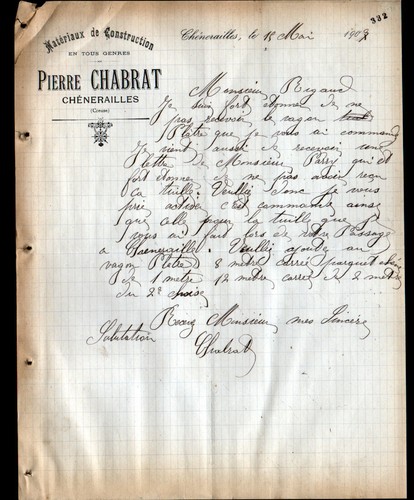 332
Matériaux de Construction
EN TOUS GENRES
PIERRE CHABRAT
CHÉNERAILLES
(Creuse)
Chénerailles, le 18 Mai 1907
Monsieur Rigaud
Je suis fort étonné de ne
pas recevoir le vagon
Plâtre que je vous ai command
Je vient aussi de recevoir une
lettre de Monsieur Parry qui est
fort étonné de ne pas avoir reçu
ça tuille. Veuillez donc je vous
prie activer c'est commande ainsi
que celle pour la tuille que je
vous ai fait lors de votre Passage
a Chénerailles. Veuillez ajouter au
vagon Plâtre 8 mètre carré parquet chêne
de 1 metre 12 mètre carré de 2 metre
du 2e choix
Recevez Monsieur mes Sincère
Salutation
Chabrat